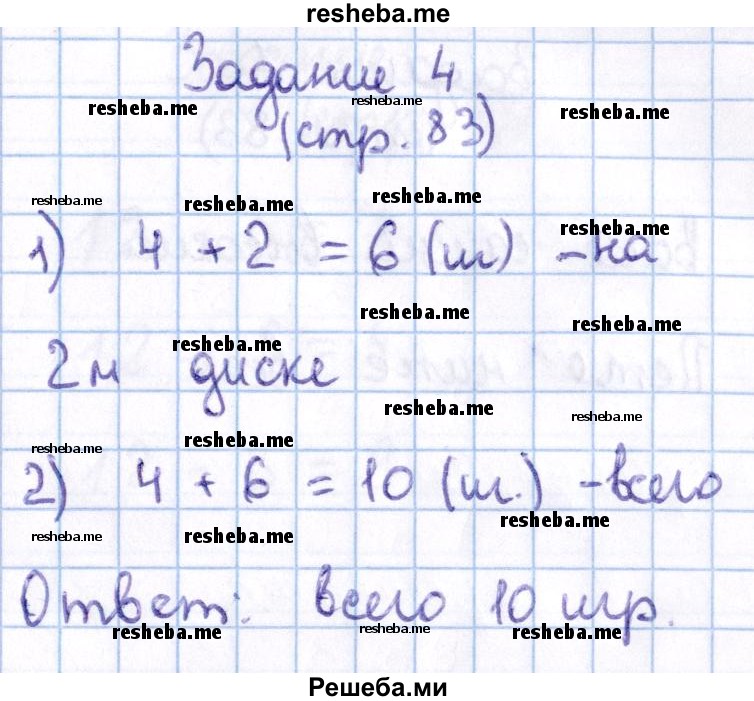 resheba.me
Задание 4
resheba.me resheba.me resheba.me
(стр. 83)
resheba.me resheba.me resheba.me
resheba.me
1) 4 + 2 = 6 (ш) - на
resheba.me resheba.me
resheba.me
2м диске
resheba.me resheba.me
resheba.me resheba.me
2) 4 + 6 = 10 (ш.) - всего
resheba.me
resheba.me resheba.me
Ответ: всего 10 шр.
resheba.me resheba.me resheba.me
Решеба.ми